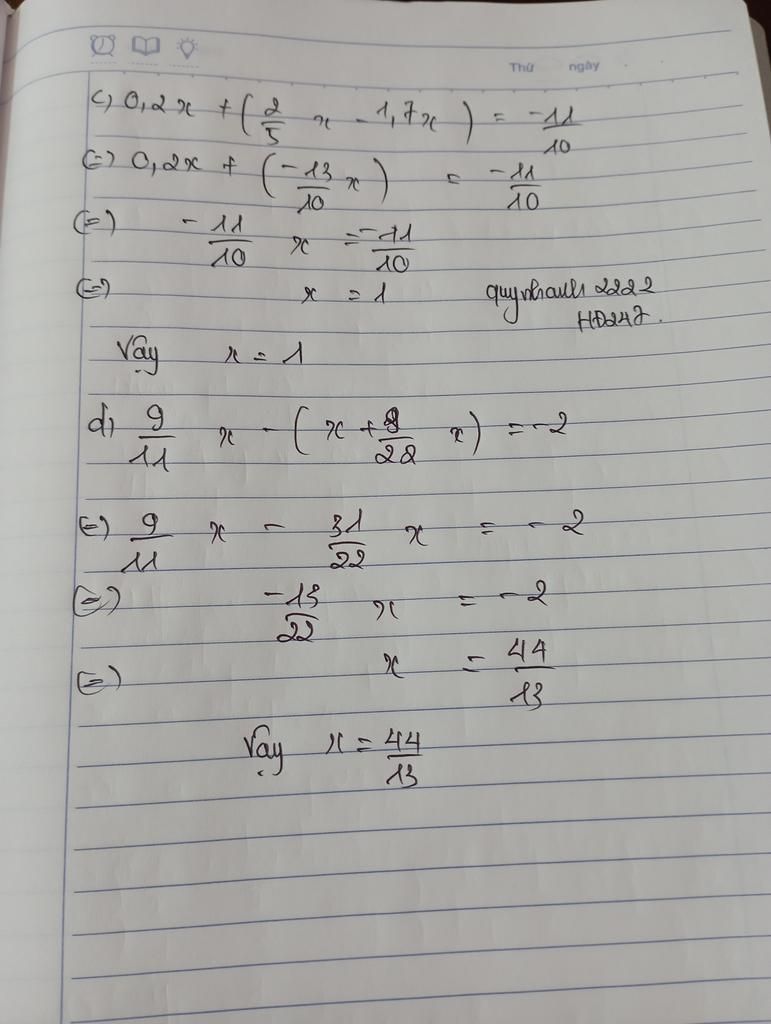 Thứ ngày
c, 0,2x + (2/5 x - 1,7x) = -11/10
(=) 0,2x + (-13/10 x) = -11/10
(=) -11/10 x = -11/10
(=) x = 1 quynhanh 2222
HD247.
Vậy x = 1
d, 9/11 x - (x + 9/22 x) = -2
(=) 9/11 x - 31/22 x = -2
(=) -13/22 x = -2
(=) x = 44/13
Vậy x = 44/13